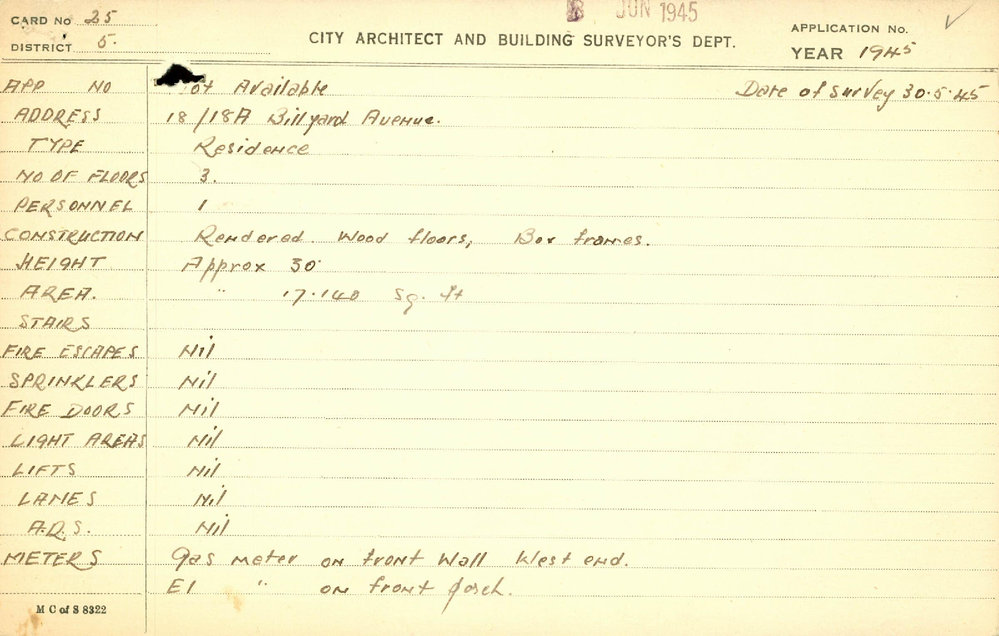 CARD No 25
8 JUN 1945
APPLICATION No.
DISTRICT 5.
CITY ARCHITECT AND BUILDING SURVEYOR'S DEPT.
YEAR 1945
APP NO ot Available Date of survey 30.5.45
ADDRESS 18/18A Billyard Avenue.
TYPE Residence
NO OF FLOORS 3.
PERSONNEL 1
CONSTRUCTION Rendered. Wood floors, Box frames.
HEIGHT Approx 30'
AREA. " 17.140 Sq. ft
STAIRS
FIRE ESCAPES Nil
SPRINKLERS Nil
FIRE DOORS Nil
LIGHT AREAS Nil
LIFTS Nil
LANES Nil
A.D.S. Nil
METERS Gas meter on front Wall West end.
El " on front porch.
M C of S 8322